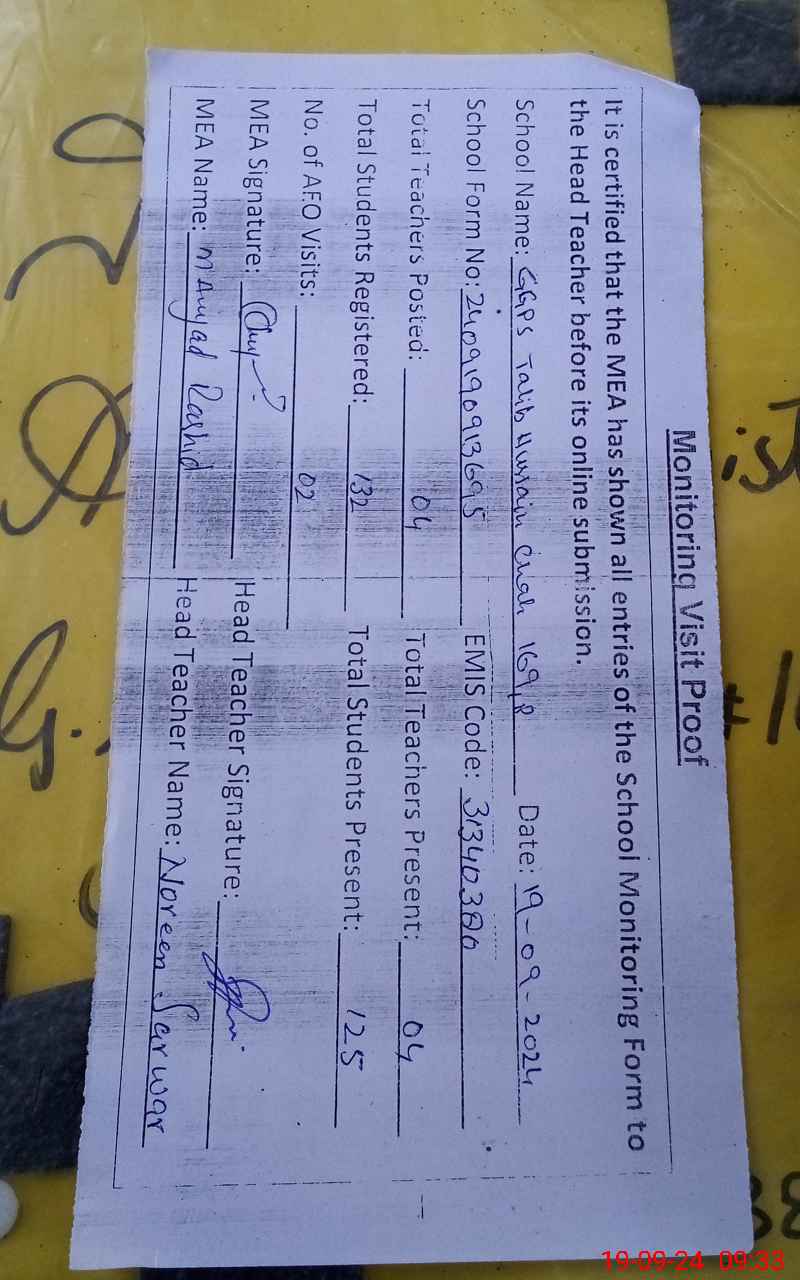 Monitoring Visit Proof
It is certified that the MEA has shown all entries of the School Monitoring Form to
the Head Teacher before its online submission.
School Name: GGPS Talib Hussain Chah 169,R Date: 19-09-2024
School Form No: 2409190913695 EMIS Code: 31340380
Total Teachers Posted: 04 Total Teachers Present: 04
Total Students Registered: 132 Total Students Present: 125
No. of AEO Visits: 02
MEA Signature: Head Teacher Signature:
MEA Name: M Amjad Rashid Head Teacher Name: Noreen Sarwar
19-09-24 09:33